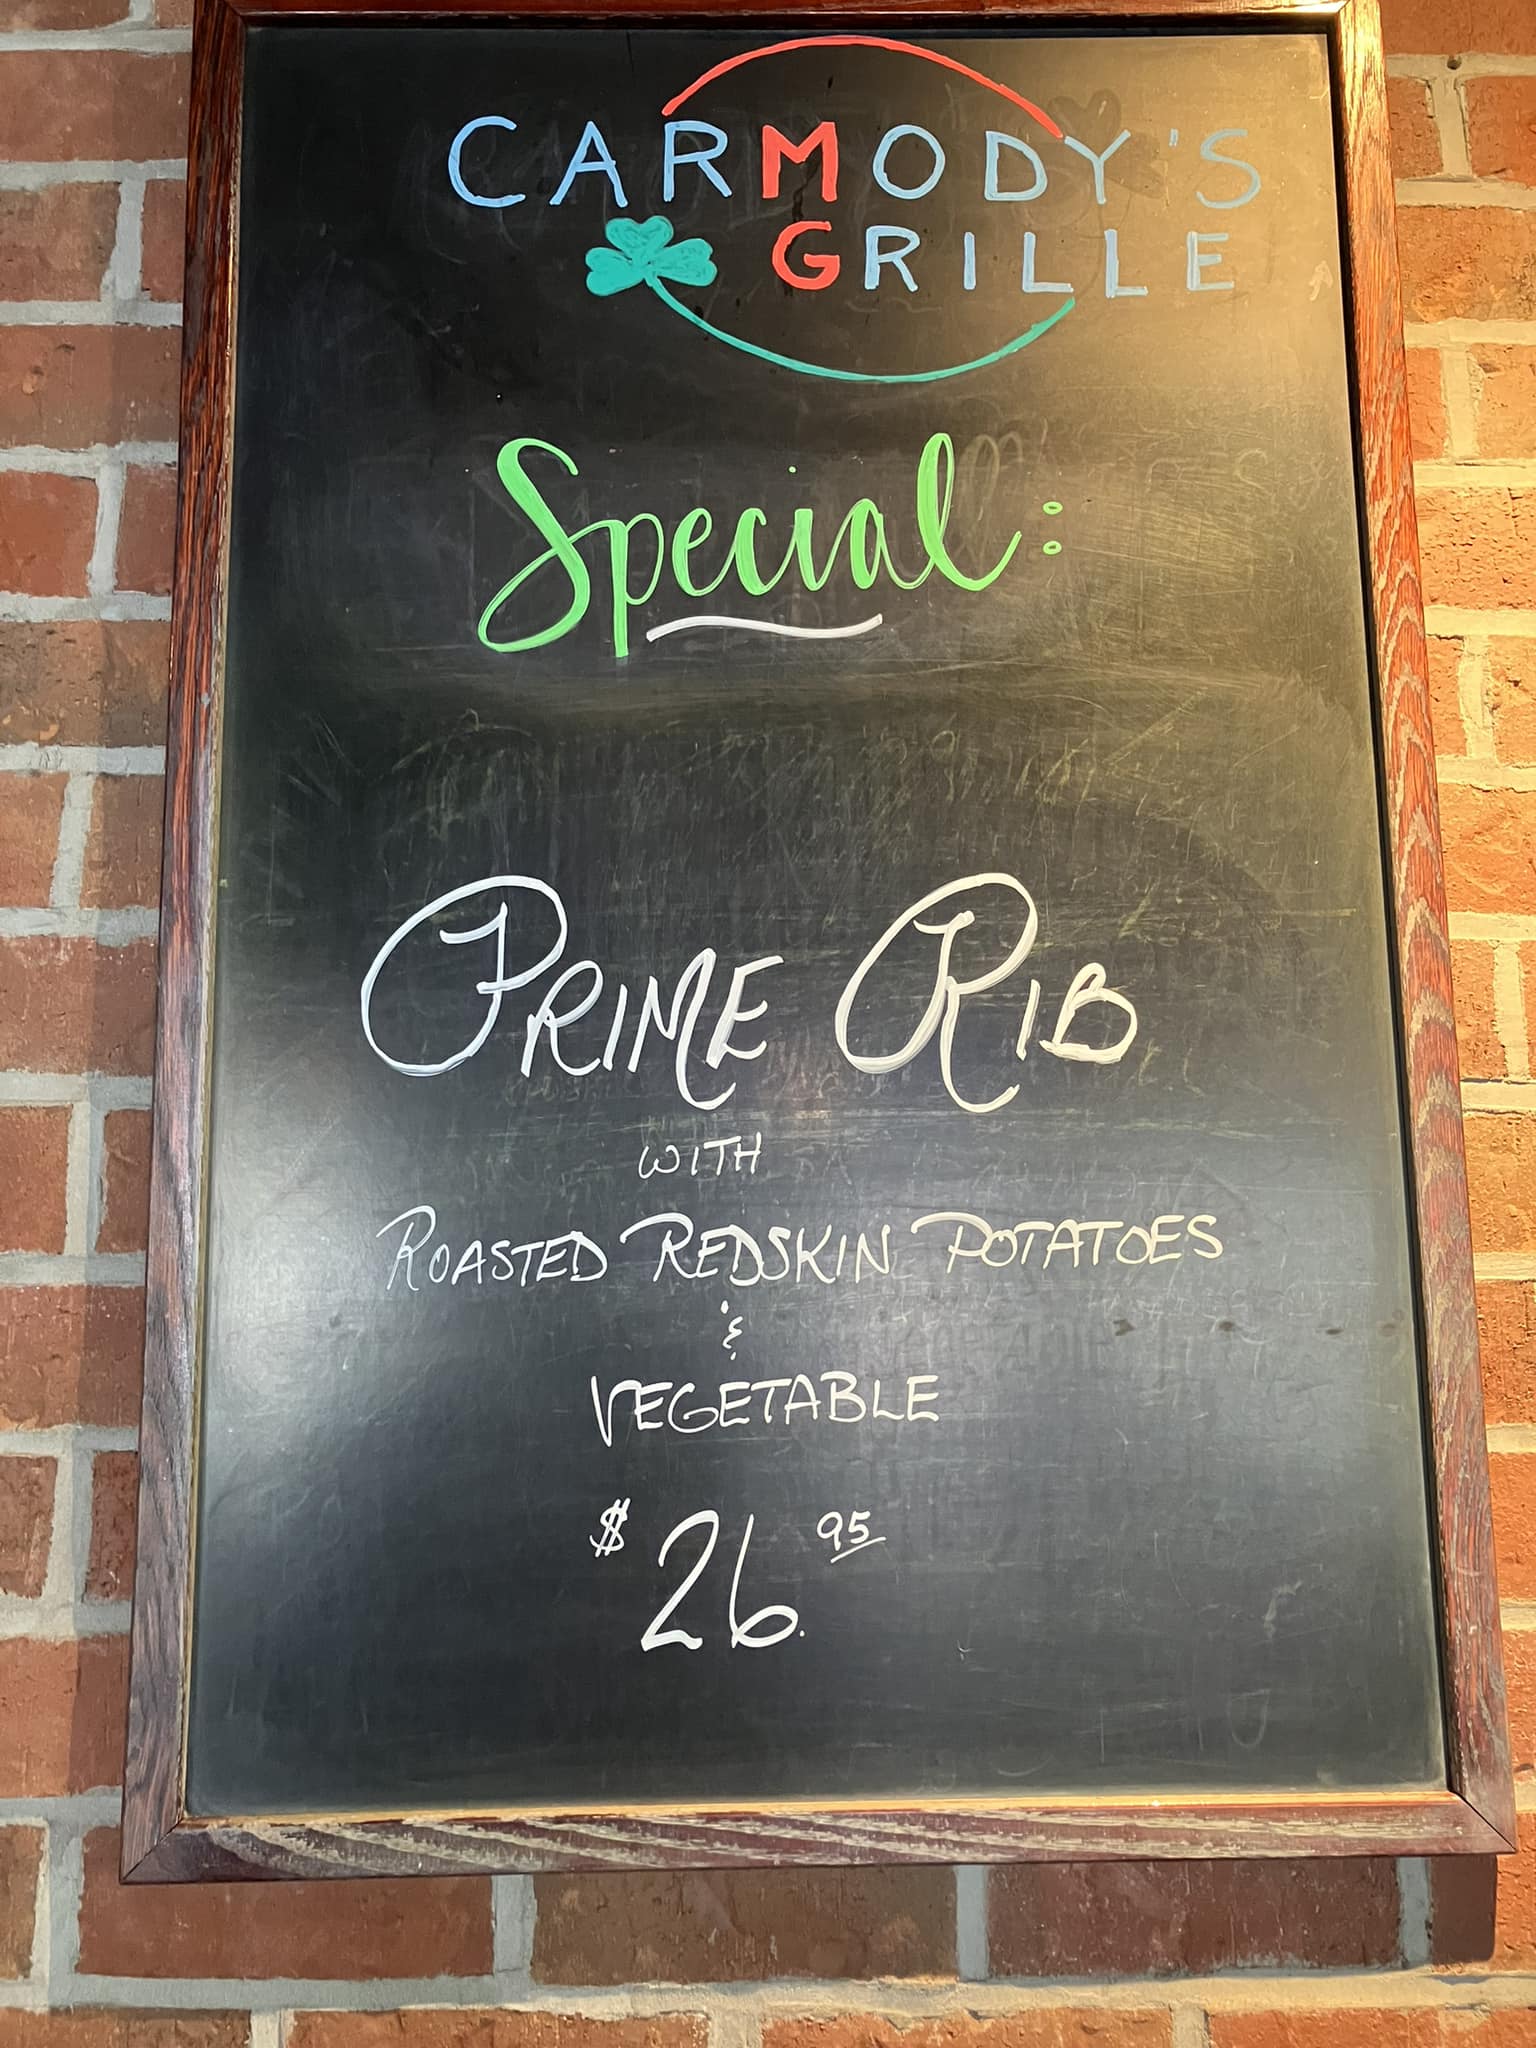 CARMODY'S
GRILLE
Special:
PRIME RIB
WITH
ROASTED REDSKIN POTATOES
&
VEGETABLE
$26.95